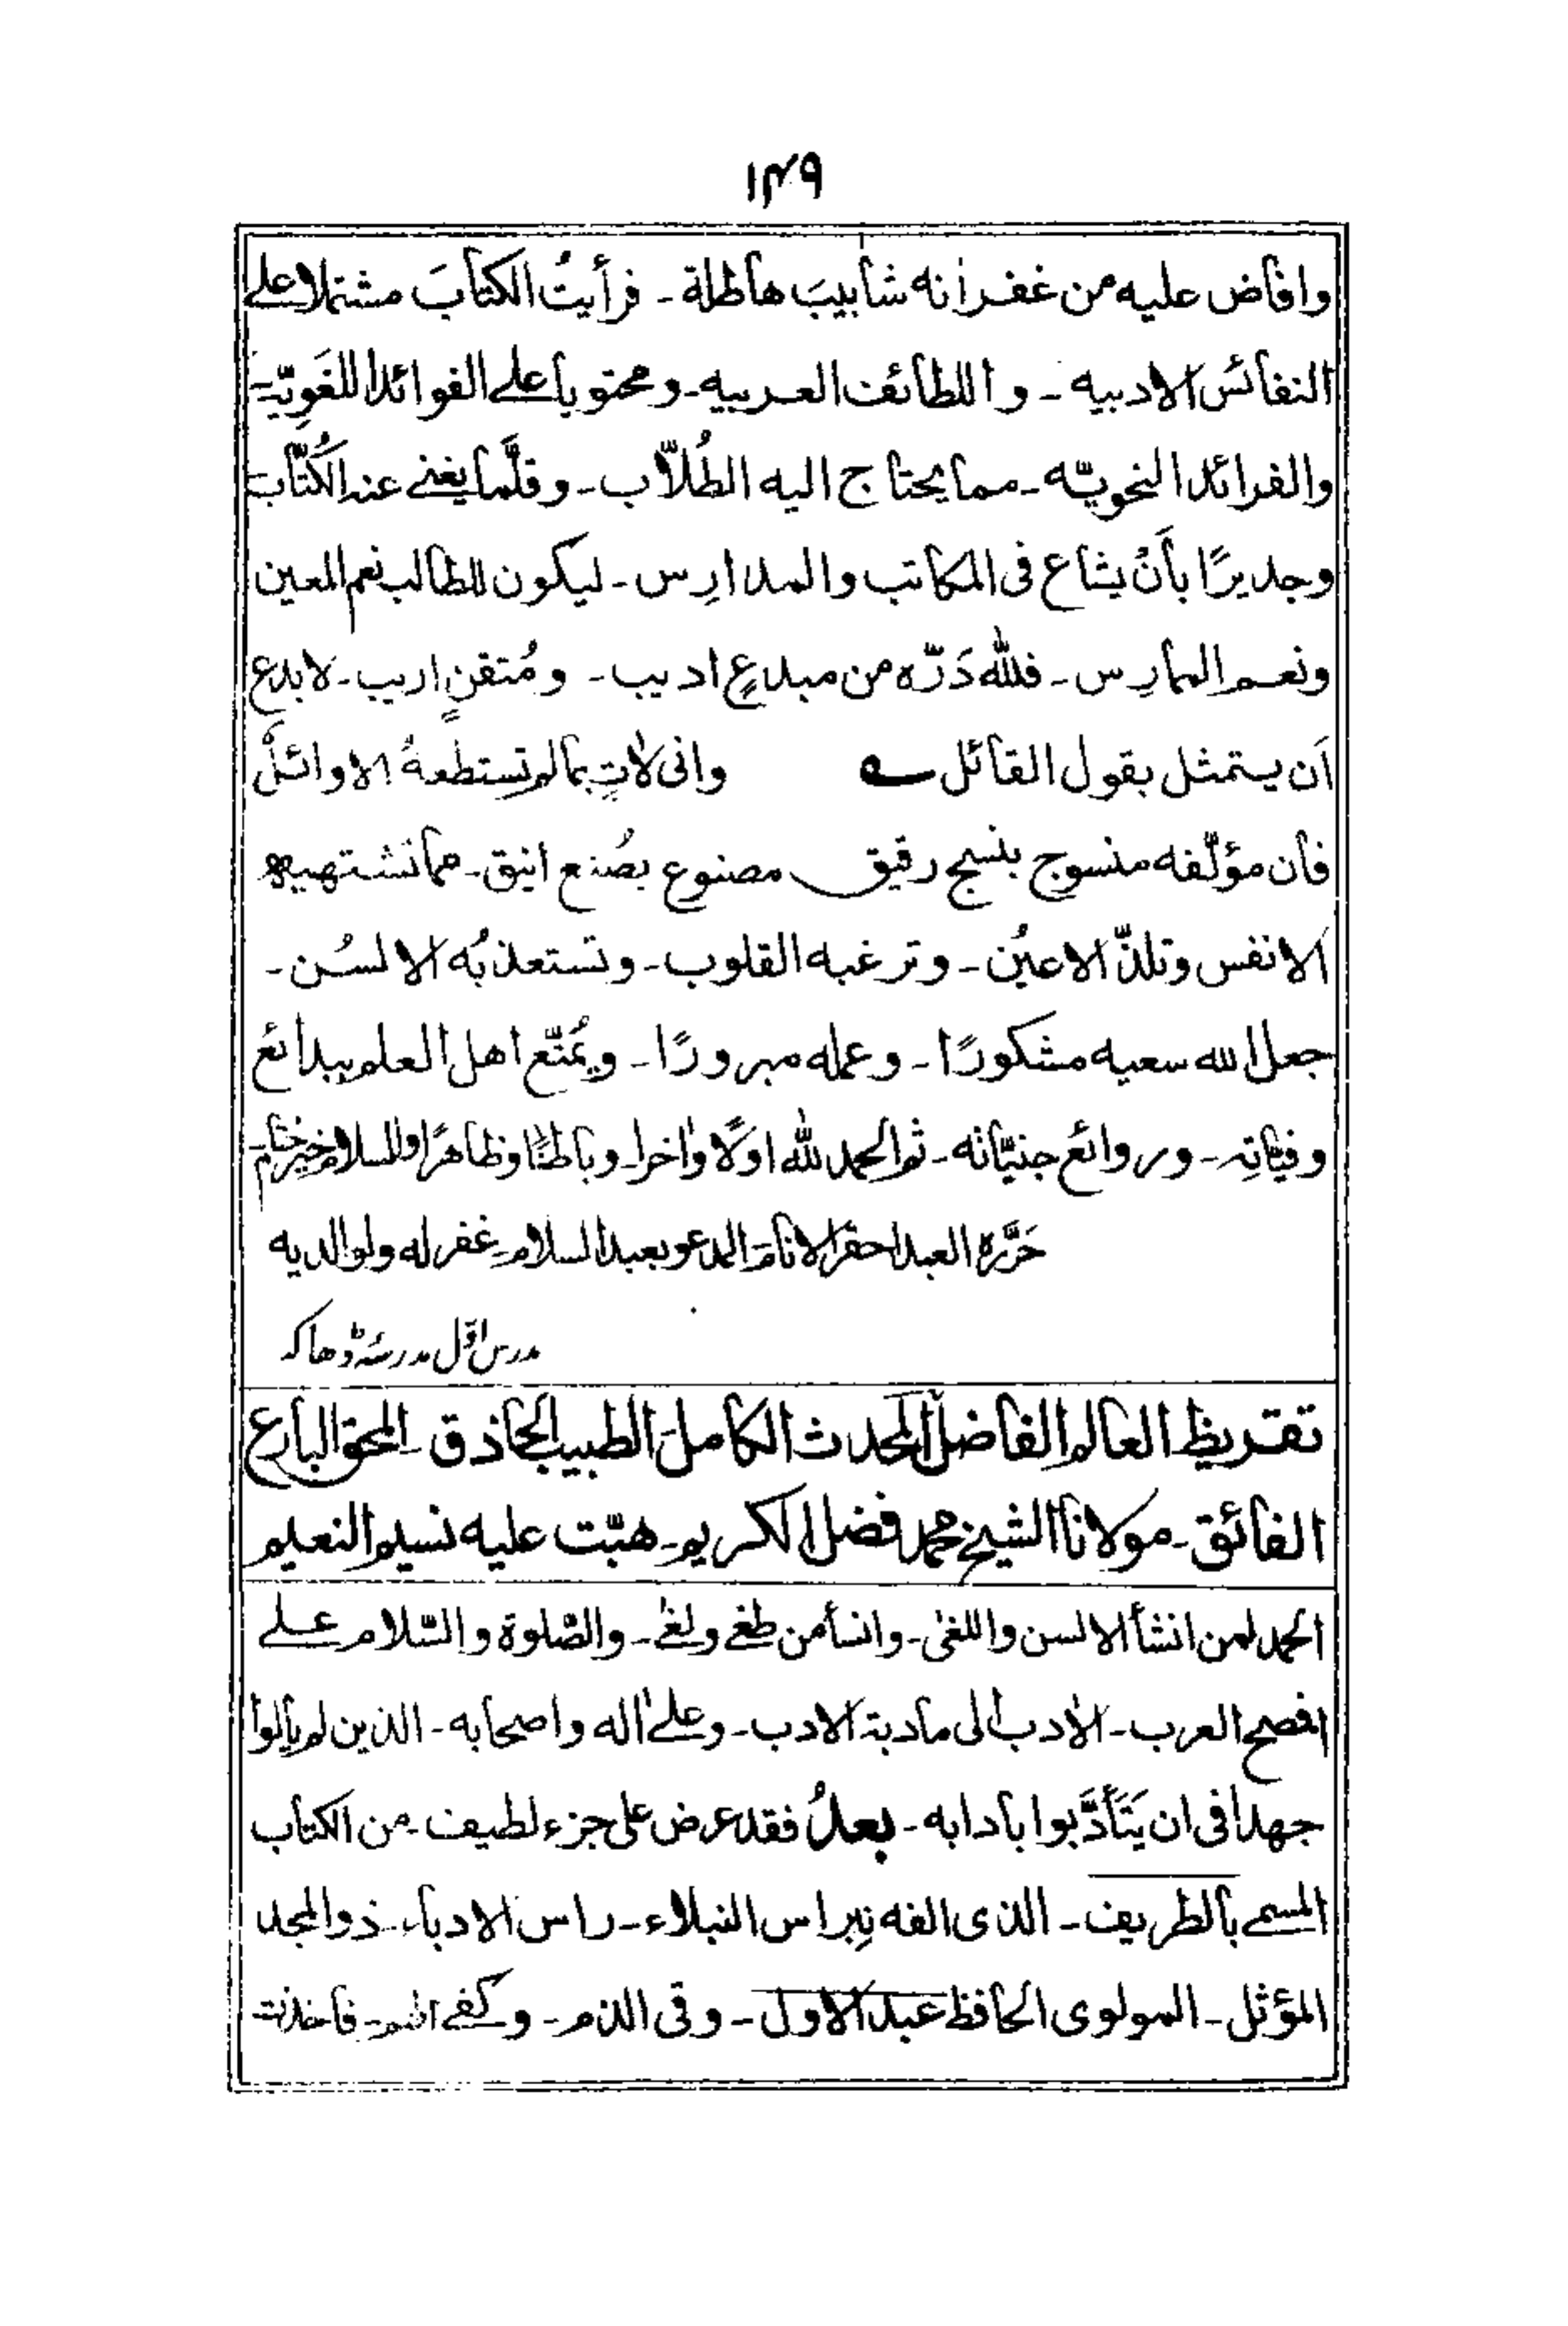 ١٣٩
وافاض عليه من غفرانه شابيبَ هاطلة ـ فرأيتُ الكتابَ مشتملا على
النفائس الادبيه ـ واللطائف العربيه ـ ومحتويا على الفوائد اللغَوِيّة ـ
والفرائد النحويّه ـ مما يحتاج اليه الطُلاّب ـ وقلَّما يغنى عنه الكُتّاب
وجديرًا بأَنْ يشاع فى المكاتب والمدارِس ـ ليكون للطالب نعم المعين
ونعم الممارِس ـ فلله دَرّه من مبدعٍ اديب ـ ومُتقنٍ اريب ـ لا بدع
اَن يتمثل بقول القائل ؎ وانى لاٰتٍ بمالم تستطعهُ الاوائلُ
فان مؤلّفه منسوج بنسج رقيق مصنوع بصُنع انيق ـ مما تشتهيه
الانفس وتلذّ الاعيُن ـ وترغبه القلوب ـ وتستعذبُه الالسُن ـ
جعل الله سعيه مشكورًا ـ وعمله مبرورًا ـ ويُمَتّع اهل العلم ببدائع
وروائع جنيّاته ـ ثم الحمد لله اوّلًا واٰخرا ـ وباطنًا وظاهرًا والسلام خير ختام
حَرَّره العبد احقر الانام المدعو بعبد السلام غفر له ولوالديه
مدرس اوّل مدرسۂ ڈھاکہ
تقريظ العالم الفاضل المحدث الكامل الطبيب الحاذق ـ المحقق البارع
الفائق ـ مولانا الشيخ محمد فضل الكريم ـ هبّت عليه نسيم النعيم
الحمد لمن انشأ الالسن واللغىٰ ـ وانسأ من طغى ولغى ـ والصّلوة والسّلام على
افصح العرب ـ الاٰدب الى مادبة الادب ـ وعلىٰ اٰله واصحابه ـ الذين لم يألوا
جهدا فى ان يَتَأَدَّبوا بادابه ـ بعدُ فقد عرض على جزء لطيف ـ من الكتاب
المسمى بالطريف ـ الذى الفه نِبراس النبلاء ـ راس الادباء ـ ذوالمجد
المؤثل ـ المولوى الحافظ عبد الاول ـ وقى الذم ـ وكفى الهم ـ فاخذت